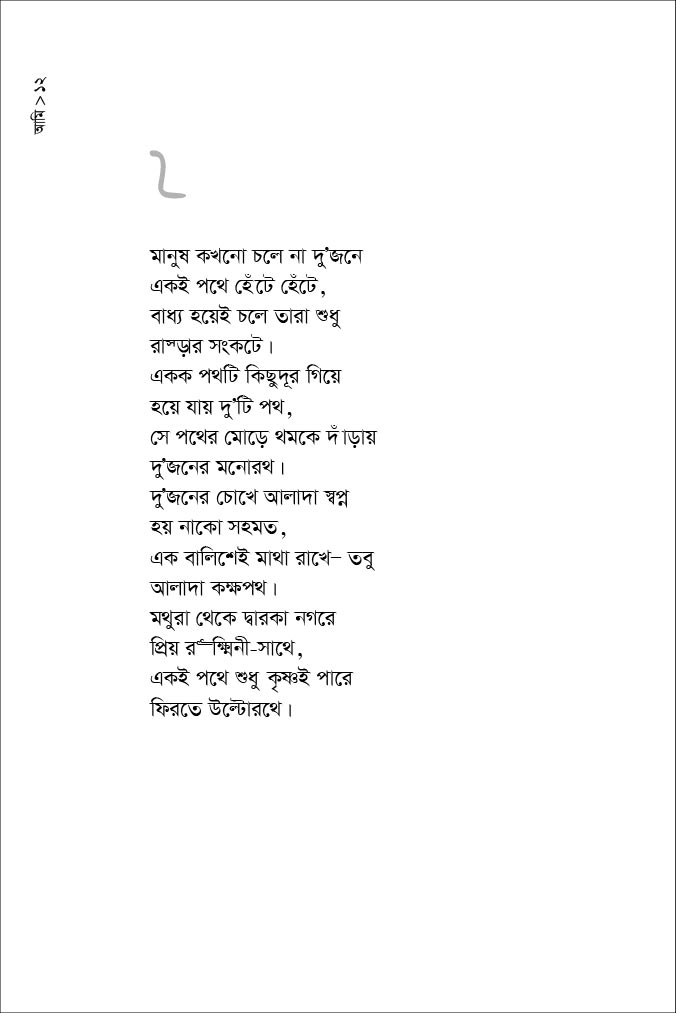 আমি > ১২
২
মানুষ কখনো চলে না দু’জনে
একই পথে হেঁটে হেঁটে,
বাধ্য হয়েই চলে তারা শুধু
রাস্তার সংকটে।
একক পথটি কিছুদূর গিয়ে
হয়ে যায় দু’টি পথ,
সে পথের মোড়ে থমকে দাঁড়ায়
দু’জনের মনোরথ।
দু’জনের চোখে আলাদা স্বপ্ন
হয় নাকো সহমত,
এক বালিশেই মাথা রাখে– তবু
আলাদা কক্ষপথ।
মথুরা থেকে দ্বারকা নগরে
প্রিয় রুক্মিনী-সাথে,
একই পথে শুধু কৃষ্ণই পারে
ফিরতে উল্টোরথে।